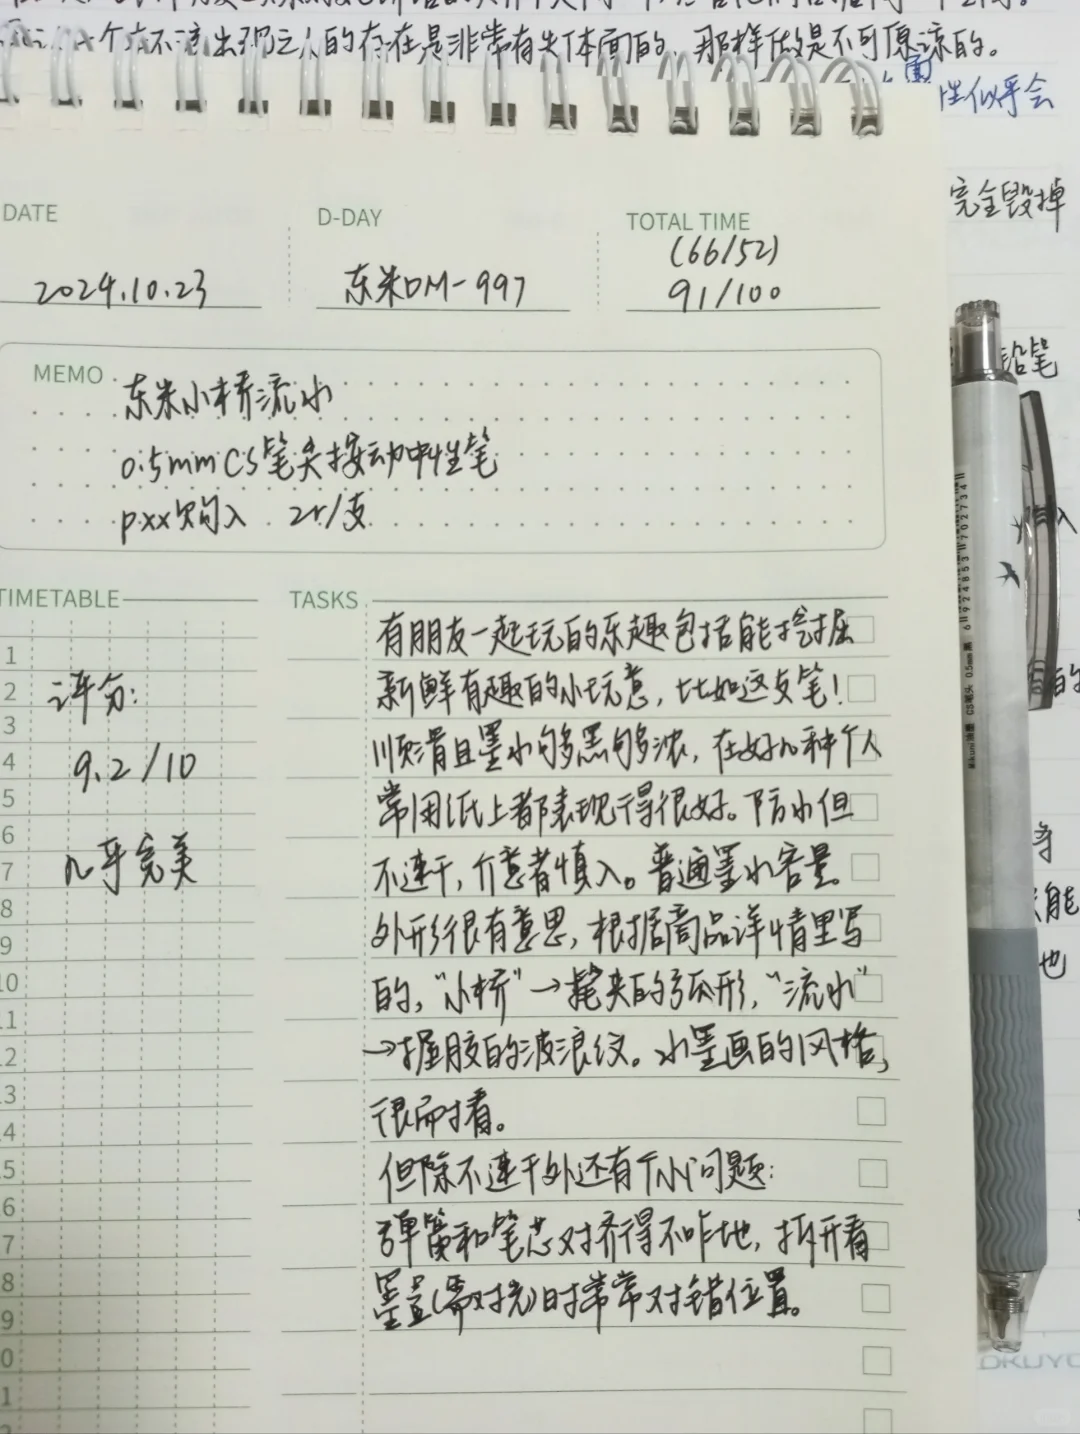 一个本不该出现之人的存在是非常有失体面的,那样做是不可原谅的。
性似乎会
完全毁掉
DATE
2024.10.23
D-DAY
东米DM-997
TOTAL TIME
(66/52)
91/100
MEMO
东米小桥流水
0.5mmCS笔尖按动中性笔
pxx购入 2r/支
铅笔
TIMETABLE
1
2
3
4
5
6
7
8
9
10
11
12
评分:
9.2/10
几乎完美
TASKS
有朋友一起玩的乐趣包括能挖掘
新鲜有趣的小玩意,比如这支笔!
顺滑且墨水够黑够浓,在好几种个人
常用纸上都表现得很好。防水但
不速干,介意者慎入。普通墨水容量。
外形很有意思,根据商品详情里写
的,“小桥”→尾夹的弧形,“流水”
→握胶的波浪纹。水墨画的风格,
很耐看。
但除不速干外还有个小问题:
弹簧和笔芯对齐得不咋地,拆开看
墨量(需对光)时常常对错位置。
6924853702734
Mikuni油墨 CS笔头 0.5mm 黑
能
也
OKUYO